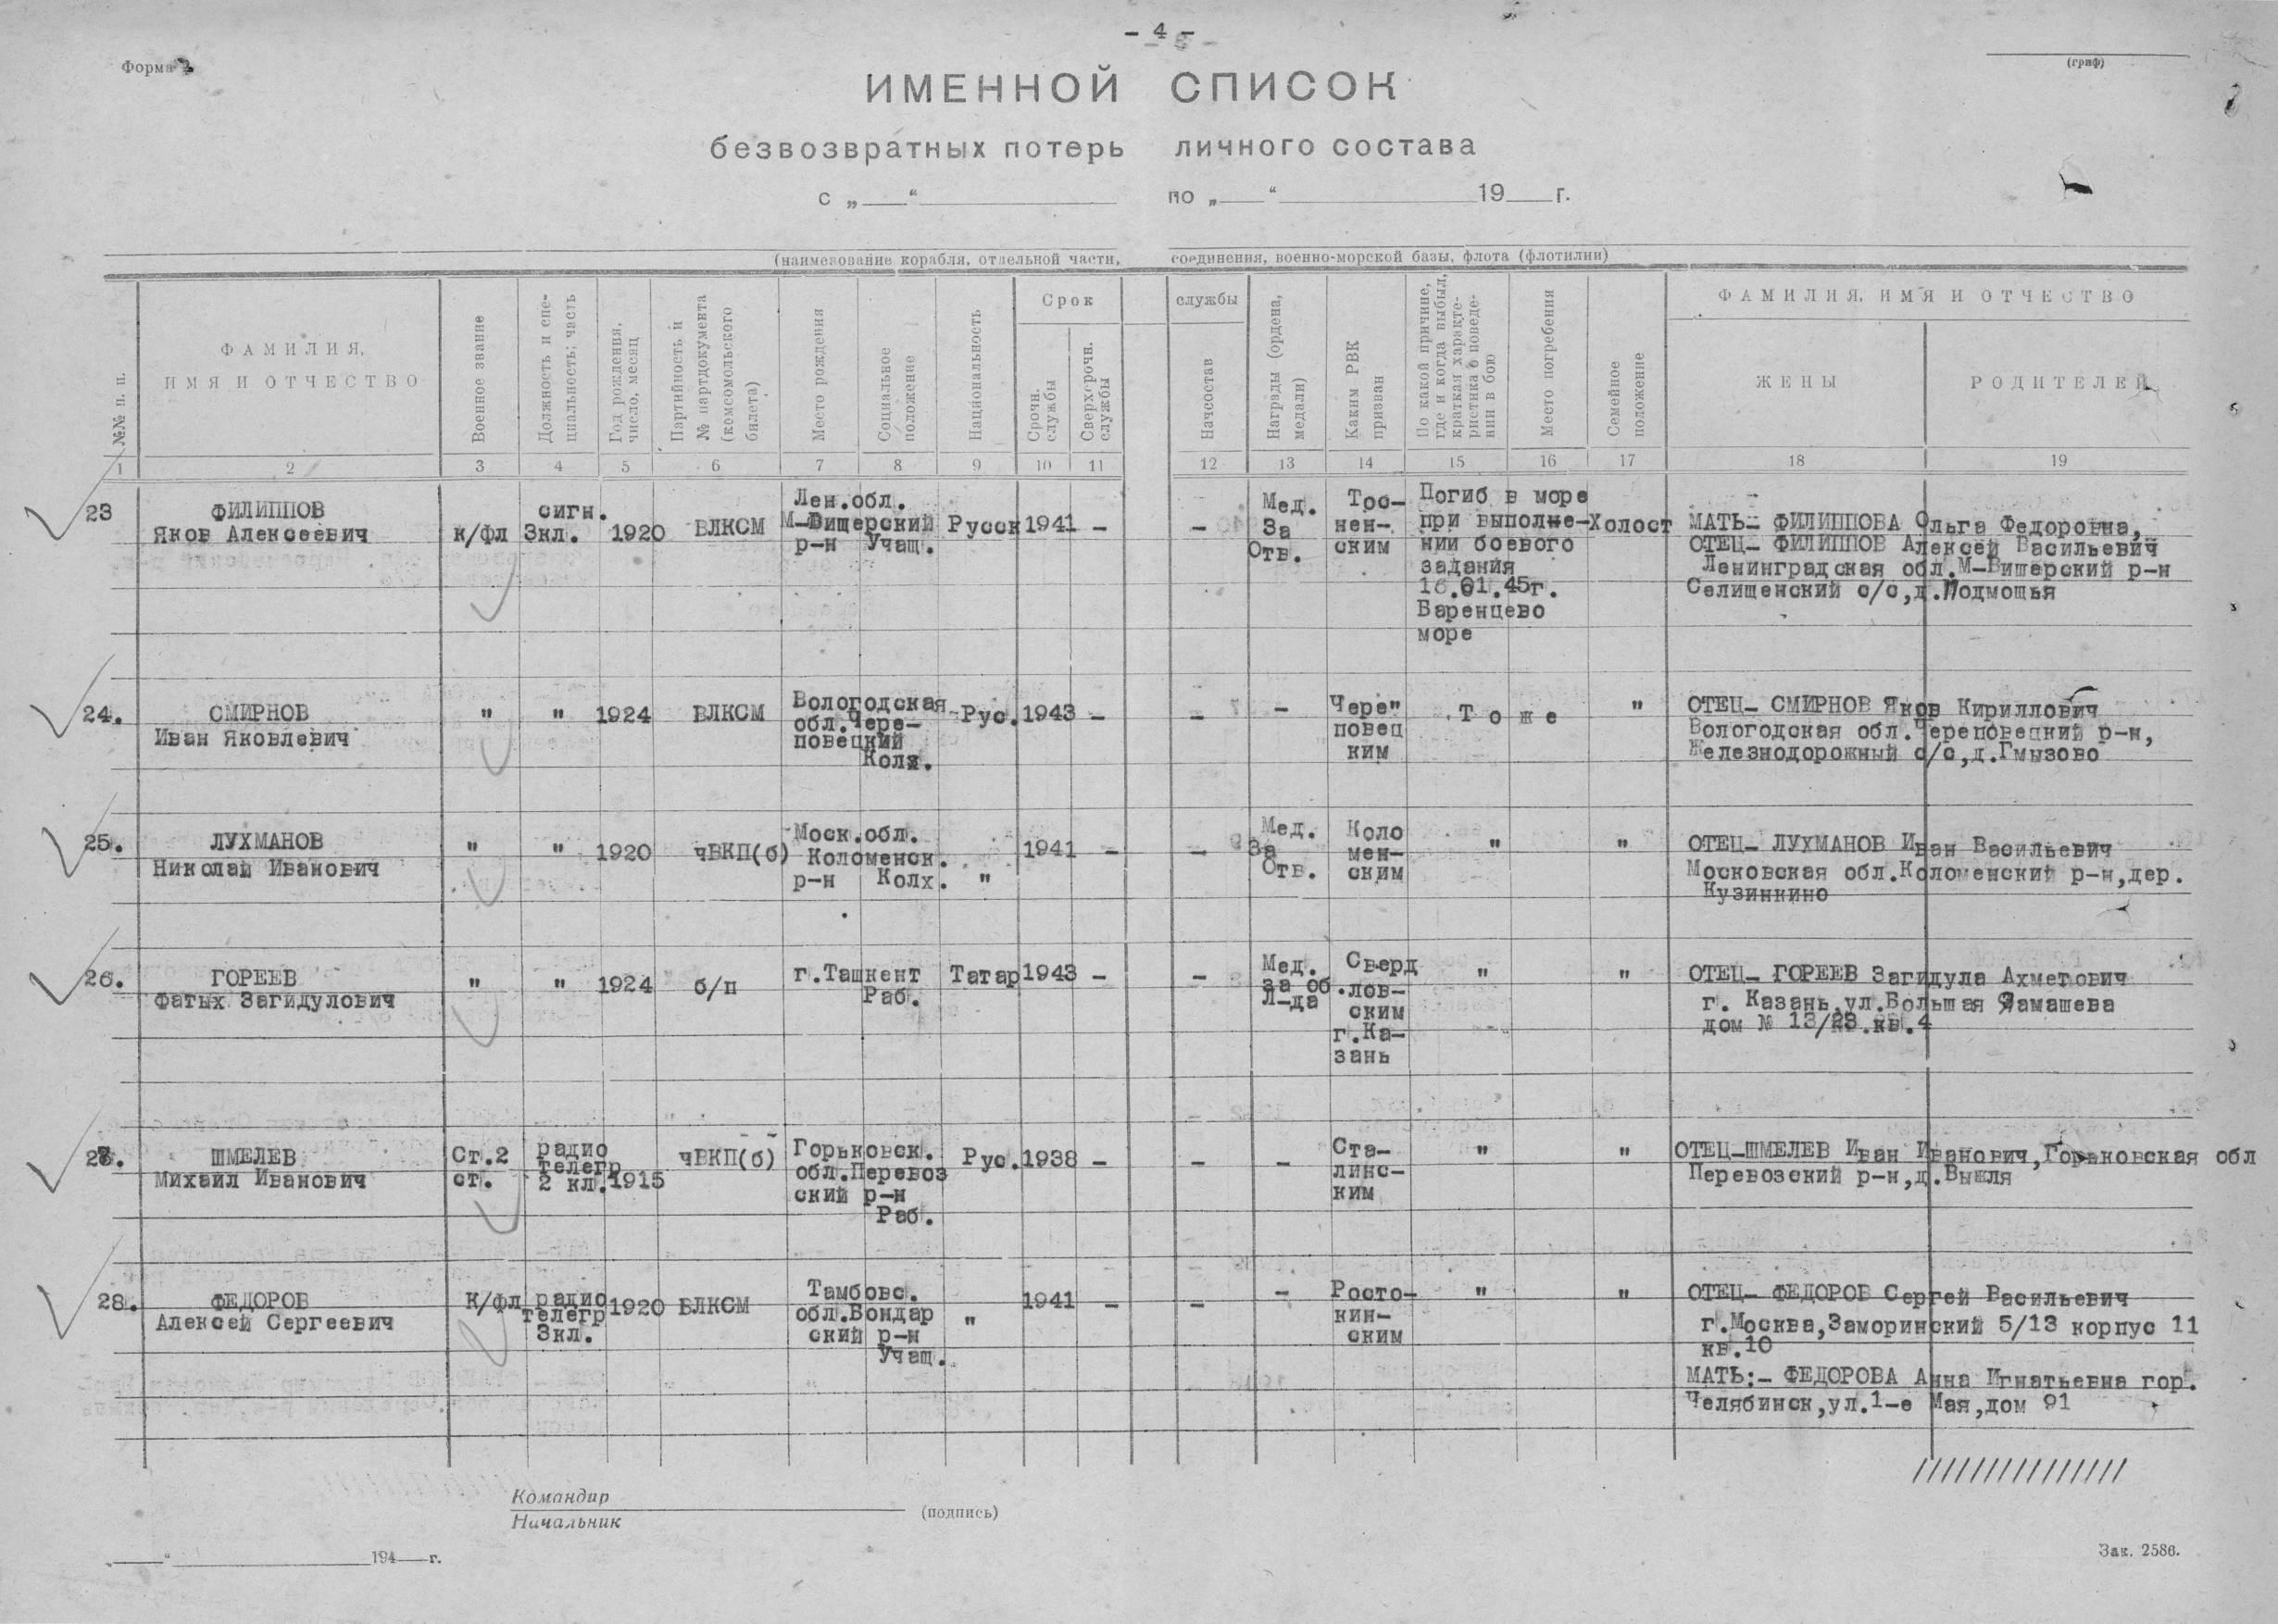 - 4 -
Форма
(гриф)
ИМЕННОЙ СПИСОК
безвозвратных потерь личного состава
с „ “ по „ “ 19 г.
(наименование корабля, отдельной части, соединения, военно-морской базы, флота (флотилии)
№№ п. п.
ФАМИЛИЯ,
ИМЯ И ОТЧЕСТВО
Военное звание
Должность и спе-
циальность; часть
Год рождения,
число, месяц
Партийность и
№ партдокумента
(комсомольского
билета)
Место рождения
Социальное
положение
Национальность
Срок службы
Срочн.
службы
Сверхсрочн.
службы
Начсостав
Награды (ордена,
медали)
Каким РВК
призван
По какой причине,
где и когда выбыл,
краткая характе-
ристика о поведе-
нии в бою
Место погребения
Семейное
положение
ФАМИЛИЯ, ИМЯ И ОТЧЕСТВО
ЖЕНЫ
РОДИТЕЛЕЙ
1 2 3 4 5 6 7 8 9 10 11 12 13 14 15 16 17 18 19
23
ФИЛИППОВ
Яков Алексеевич
к/фл
сигн.
3кл.
1920
ВЛКСМ
Лен.обл.
М-Вишерский
р-н Учащ.
Русск
1941 -
-
Мед.
За
Отв.
Тос-
нен-
ским
Погиб в море
при выполне-
нии боевого
задания
16.01.45г.
Баренцево
море
Холост
МАТЬ- ФИЛИППОВА Ольга Федоровна,
ОТЕЦ- ФИЛИППОВ Алексей Васильевич
Ленинградская обл.М-Вишерский р-н
Селищенский с/с,д.Подмощья
24.
СМИРНОВ
Иван Яковлевич
"
"
1924
ВЛКСМ
Вологодская
обл.Чере-
повецкий
Колх.
Рус.
1943 -
-
-
Чере"
повец
ким
Т о ж е
"
ОТЕЦ- СМИРНОВ Яков Кириллович
Вологодская обл.Череповецкий р-н,
Железнодорожный с/с,д.Гмызово
25.
ЛУХМАНОВ
Николай Иванович
"
"
1920
чВКП(б)
Моск.обл.
Коломенск.
р-н Колх.
"
1941 -
-
Мед.
За
Отв.
Коло
мен-
ским
"
"
ОТЕЦ- ЛУХМАНОВ Иван Васильевич
Московская обл.Коломенский р-н,дер.
Кузинкино
26.
ГОРЕЕВ
Фатых Загидулович
"
"
1924
б/п
г.Ташкент
Раб.
Татар
1943 -
-
Мед.
за об.
Л-да
Сверд
лов-
ским
г.Ка-
зань
"
"
ОТЕЦ- ГОРЕЕВ Загидула Ахметович
г. Казань,ул.Большая Ямашева
дом № 13/23.кв.4
27.
ШМЕЛЕВ
Михаил Иванович
Ст.2
ст.
радио
телегр
2 кл.
1915
чВКП(б)
Горьковск.
обл.Перевоз
ский р-н
Раб.
Рус.
1938 -
-
-
Ста-
линс-
ким
"
"
ОТЕЦ-ШМЕЛЕВ Иван Иванович,Горьковская обл
Перевозский р-н,д.Вышля
28.
ФЕДОРОВ
Алексей Сергеевич
К/фл
радио
телегр
3кл.
1920
ВЛКСМ
Тамбовс.
обл.Бондар
ский р-н
Учащ.
"
1941 -
-
-
Росто-
кин-
ским
"
"
ОТЕЦ- ФЕДОРОВ Сергей Васильевич
г.Москва,Заморинский 5/13 корпус 11
кв.10
МАТЬ:- ФЕДОРОВА Анна Игнатьевна гор.
Челябинск,ул.1-е Мая,дом 91
///////////////
Командир
Начальник
(подпись)
„ “ 194 г.
Зак. 2586.